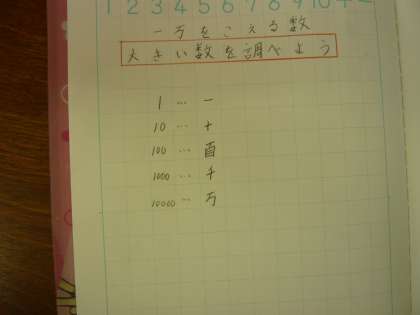 1 2 3 4 5 6 7 8 9 10
一万をこえる数
大きい数を調べよう
1 … 一
10 … 十
100 … 百
1000 … 千
10000 … 万